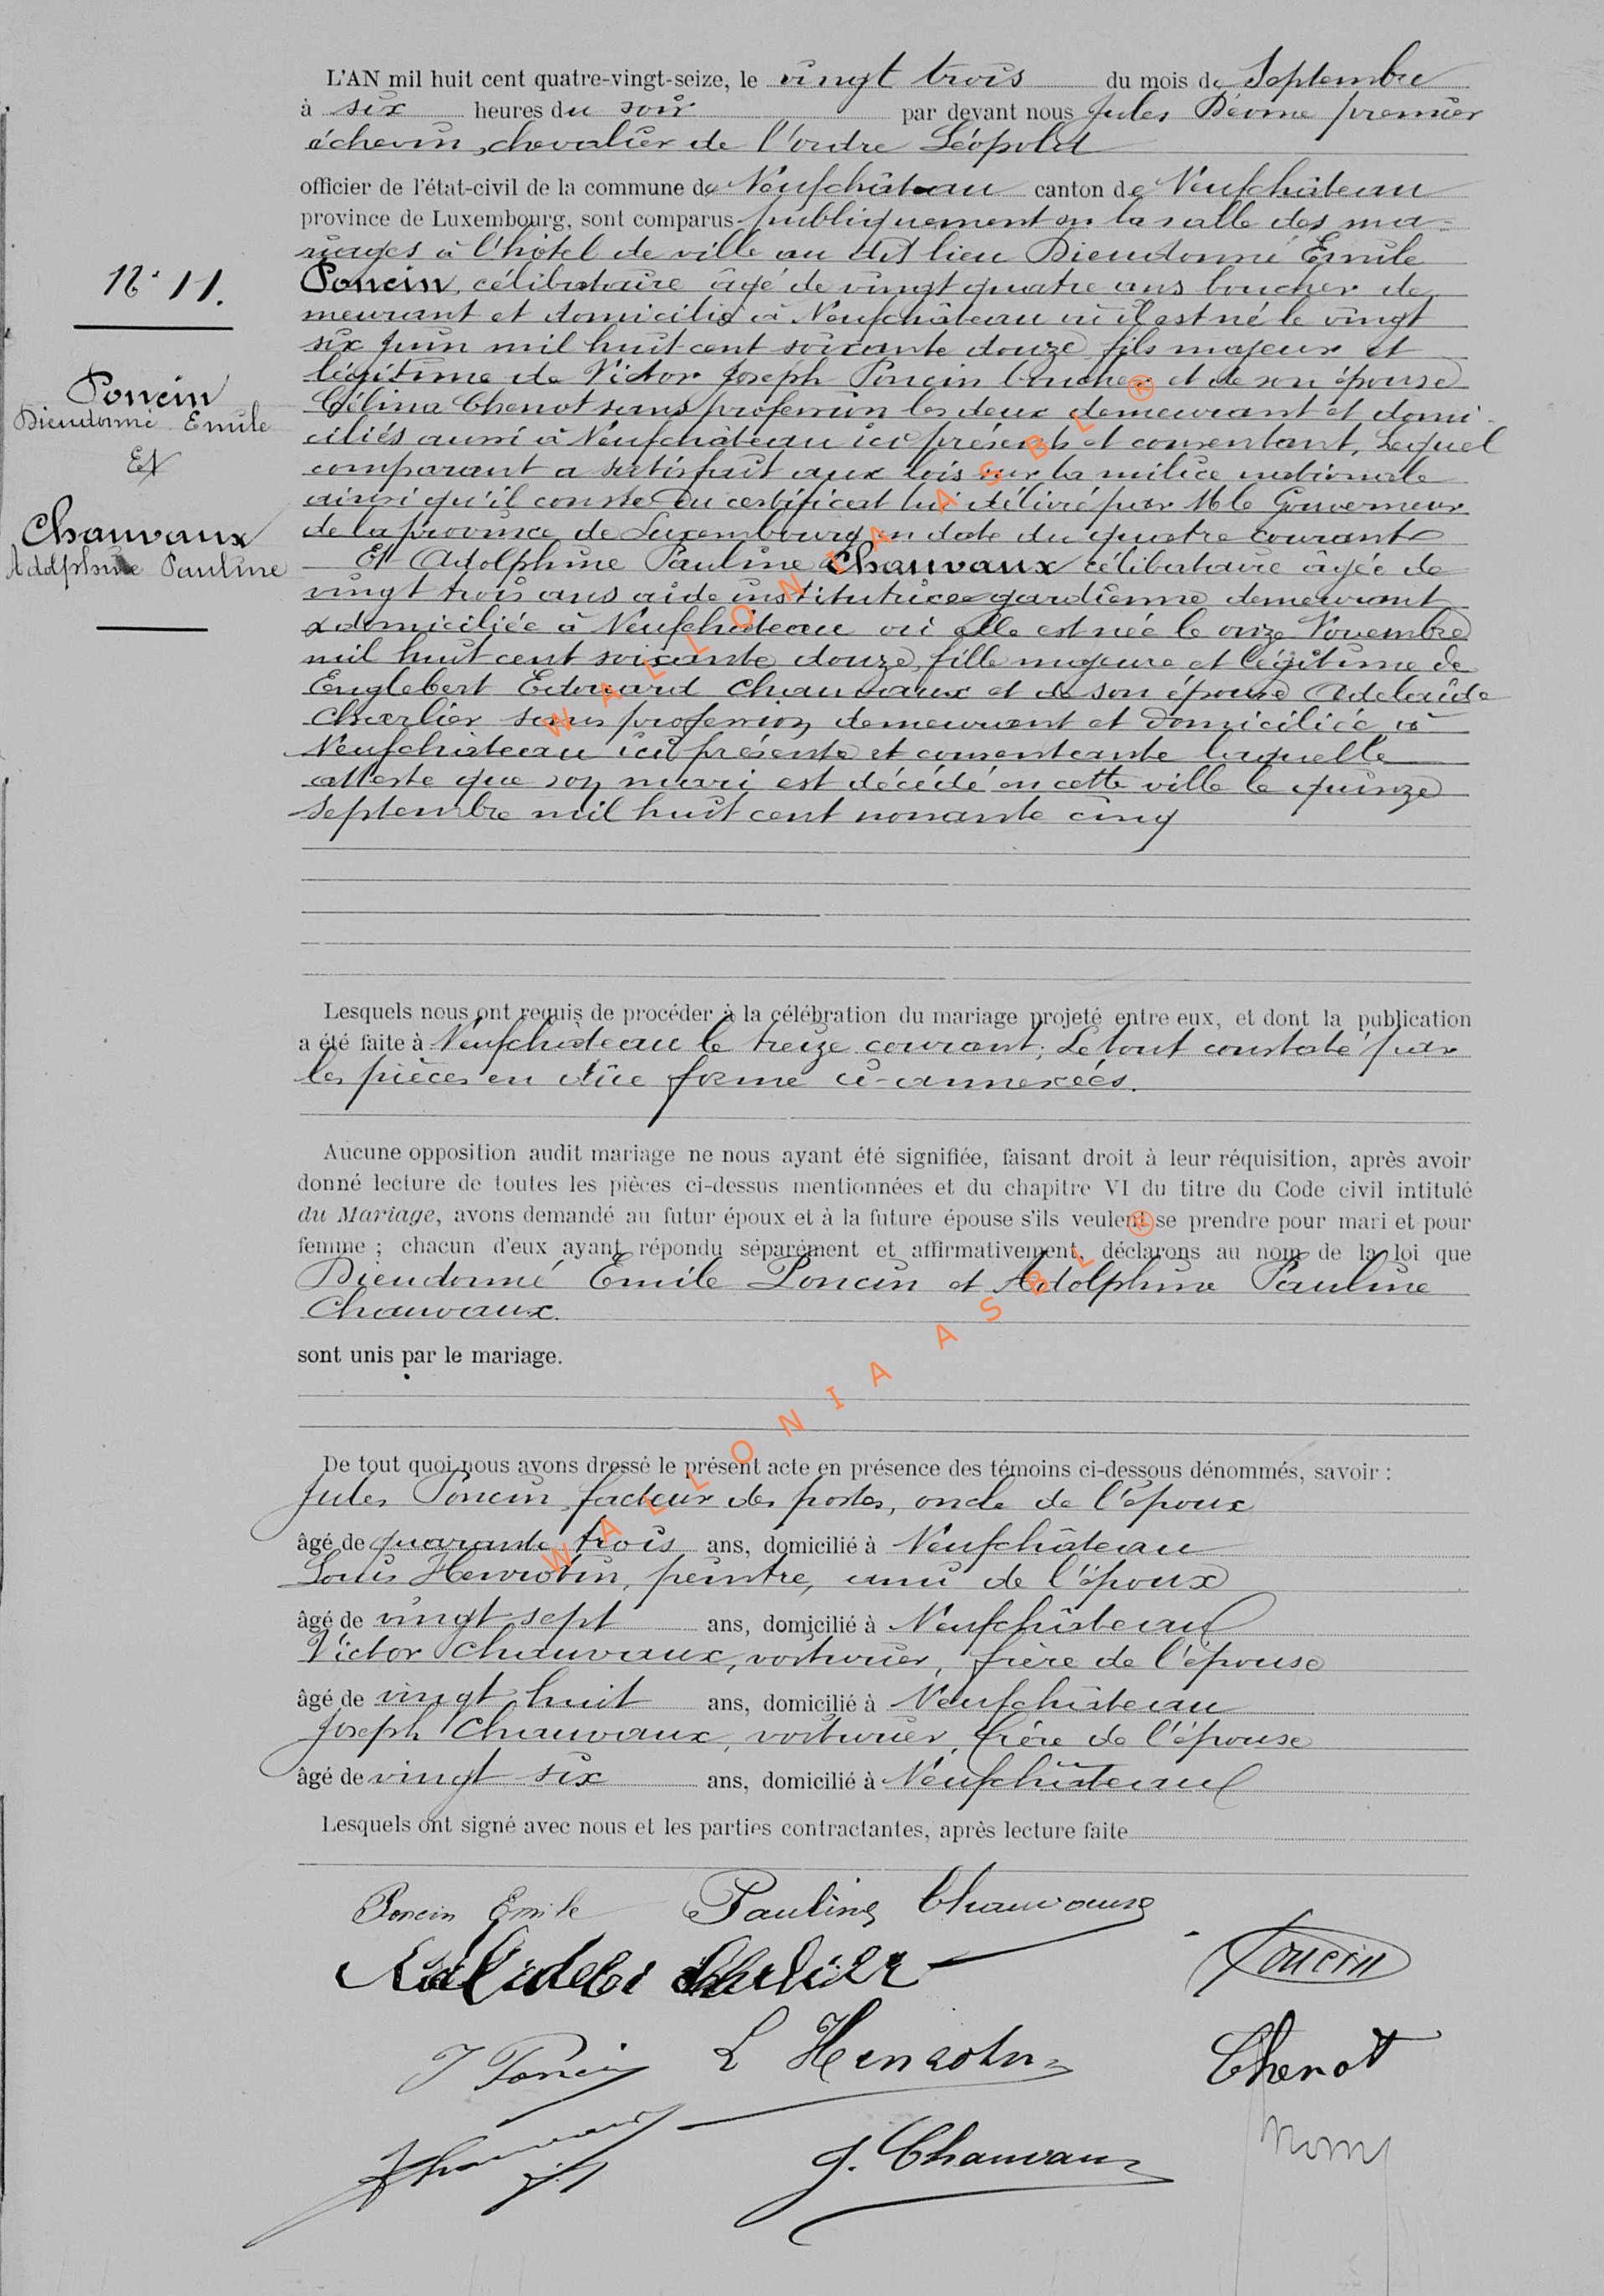 L'AN mil huit cent quatre-vingt-seize, le vingt trois du mois de Septembre
à six heures du soir par devant nous Jules premier
échevin, chevalier de l'ordre Léopold
officier de l'état-civil de la commune de Neufchâteau canton de Neufchâteau
province de Luxembourg, sont comparus publiquement en la salle des ma-
riages à l'hôtel de ville au dit lieu Dieudonné Emile
N° 11.
Poncin, célibataire âgé de vingt quatre ans boucher de
meurant et domicilié à Neufchâteau où il est né le vingt
six Juin mil huit cent soixante douze, fils majeur et
légitime de Victor Joseph Poncin boucher et de son épouse
Poncin
Dieudonné Emile
Et
Chauvaux
Adolphine Pauline
Célina Chenot sans profession les deux demeurant et domi-
ciliés aussi à Neufchâteau ici présents et consentant, Lequel
comparant a satisfait aux lois sur la milice nationale
ainsi qu'il conste du certificat lui délivré par M le Gouverneur
de la province de Luxembourg en date du quatre courant
Et Adolphine Pauline Chauvaux célibataire âgée de
vingt trois ans aide institutrice gardienne demeurant
& domiciliée à Neufchâteau où elle est née le onze Novembre
mil huit cent soixante douze, fille majeure et légitime de
Englebert Edouard Chauvaux et de son épouse Adelaïde
Charlier sans profession, demeurant et domiciliée à
Neufchâteau ici présente et consentante laquelle
atteste que son mari est décédé en cette ville le quinze
septembre mil huit cent nonante cinq
Lesquels nous ont requis de procéder à la célébration du mariage projeté entre eux, et dont la publication
a été faite à Neufchâteau le treize courant; Le tout constaté par
les pièces en dûe forme ci-annexées.
Aucune opposition audit mariage ne nous ayant été signifiée, faisant droit à leur réquisition, après avoir
donné lecture de toutes les pièces ci-dessus mentionnées et du chapitre VI du titre du Code civil intitulé
du Mariage, avons demandé au futur époux et à la future épouse s'ils veulent se prendre pour mari et pour
femme ; chacun d'eux ayant répondu séparément et affirmativement, déclarons au nom de la loi que
Dieudonné Emile Poncin et Adolphine Pauline
Chauvaux.
sont unis par le mariage.
De tout quoi nous avons dressé le présent acte en présence des témoins ci-dessous dénommés, savoir :
Jules Poncin, facteur des postes, oncle de l'époux
âgé de quarante trois ans, domicilié à Neufchâteau
Louis Henrotin, peintre, ami de l'époux
âgé de vingt sept ans, domicilié à Neufchâteau
Victor Chauvaux, voiturier, frère de l'épouse
âgé de vingt huit ans, domicilié à Neufchâteau
Joseph Chauvaux, voiturier, frère de l'épouse
âgé de vingt six ans, domicilié à Neufchâteau
Lesquels ont signé avec nous et les parties contractantes, après lecture faite
Poncin Emile Pauline Chauvaux
Poncin
J Poncin L Henrotin Chenot
J. Chauvaux
WALLONIA ASBL ®
WALLONIA ASBL ®